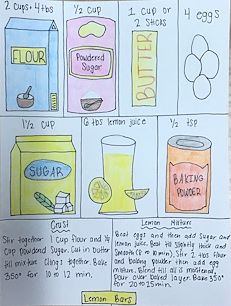 2 Cups + 4 tbs
1/2 Cup
1 Cup or
2 Sticks
4 eggs
FLOUR
Powdered
Sugar
BUTTER
1 1/2 Cup
6 tbs lemon juice
1/2 tsp
SUGAR
BAKING
POWDER
Crust
Stir together 1 Cup flour and 1/4
Cup powdered Sugar. Cut in butter
till mixture Clings together. Bake
350° for 10 to 12 min.
Lemon Mixture
Beat eggs and then add Sugar and
lemon juice. Beat till slightly thick and
Smooth (8 to 10 min). Stir 2 tbs flour
and baking powder then add egg
mixture. Blend till all is moistened,
Pour over baked layer. Bake 350°
for 20 to 25 min.
Lemon Bars